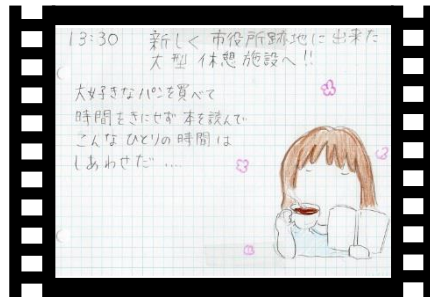 13:30 新しく市役所跡地に出来た
大型休憩施設へ!!
大好きなパンを買べて
時間をきにせず本を読んで
こんなひとりの時間は
しあわせだ…